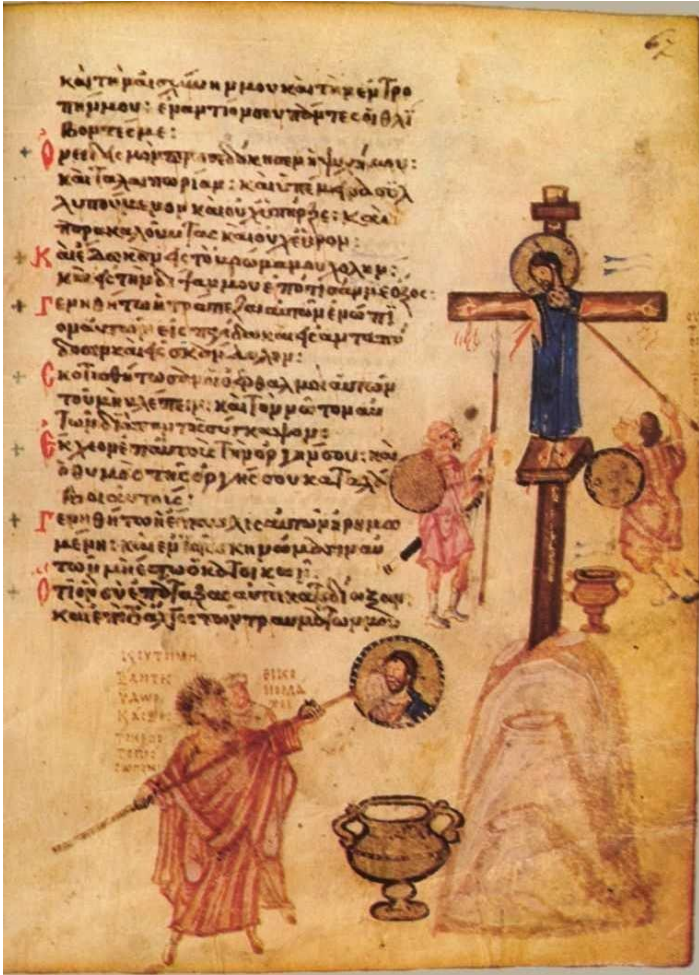 67
και την αισχύνην μου και την εντρο
πην μου: εναντίον σου πάντες οι θλί
βοντές με:
Ονειδισμόν προσεδόκησεν η ψυχή μου:
και ταλαιπωρίαν: και υπέμεινα συλ
λυπούμενον και ουχ υπήρξε: και
παρακαλούντας και ουχ εύρον:
Και έδωκαν εις το βρώμα μου χολήν:
και εις την δίψαν μου επότισάν με όξος:
Γενηθήτω η τράπεζα αυτών ενώπι
ον αυτών εις παγίδα και εις ανταπό
δοσιν και εις σκάνδαλον:
Σκοτισθήτωσαν οι οφθαλμοί αυτών
του μη βλέπειν: και τον νώτον αυ
των διαπαντός σύγκαμψον:
Έκχεον επ αυτούς την οργήν σου: και
ο θυμός της οργής σου καταλά
βοι αυτούς:
Γενηθήτω η έπαυλις αυτών ηρημω
μένη: και εν τοις σκηνώμασιν αυ
των μη έστω ο κατοικών:
Ότι ον συ επάταξας αυτοί κατεδίωξαν
και επί το άλγος των τραυμάτων μου
ΥΔΩΡ
ΕΙΚΟ
ΝΟΜΑ
ΧΟΙ